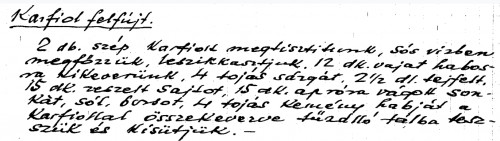 Karfiol felfújt.
2 db. szép karfiolt megtisztitunk, sós vizben
megfőzzük, leszikkasztjuk. 12 dk. vajat habos-
ra kikeverünk, 4 tojás sárgát, 2½ dl. tejfelt,
15 dk. reszelt sajtot, 15 dk. apróra vágott son-
kát, sót, borsot, 4 tojás kemény habját a
karfiollal összekeverve tűzálló tálba tesz-
szük és kisütjük. —